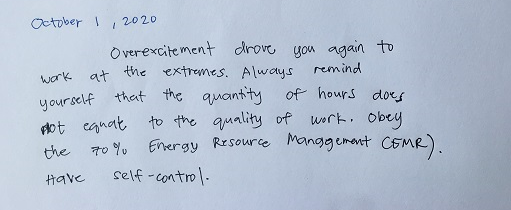 October 1, 2020
Overexcitement drove you again to
work at the extremes. Always remind
yourself that the quantity of hours does
not equat to the quality of work. Obey
the 70% Energy Resource Management (EMR).
Have self-control.